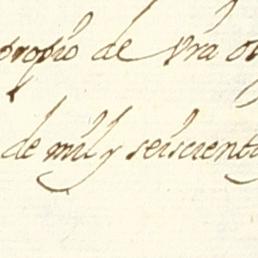 propio de Vra
de mil y seiscient